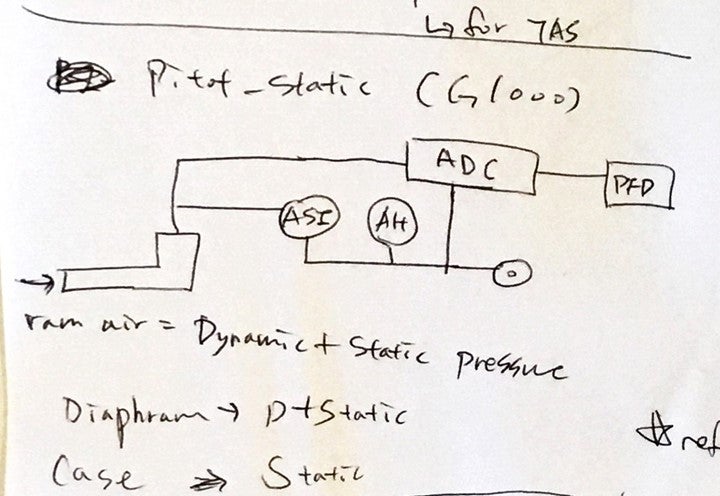 ↳ for TAS
Pitot-Static (G1000)
ADC
PFD
ASI
Alt
ram air = Dynamic + Static pressure
Diaphram → D+Static
Case ⇒ Static
☆ ref